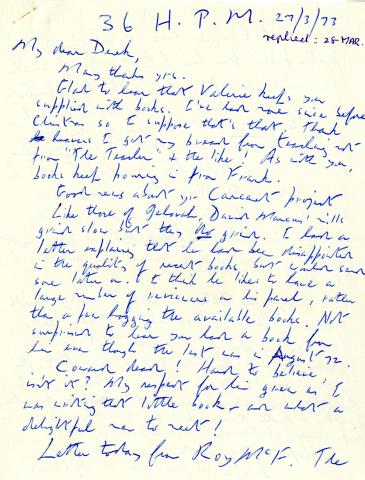 36 H.P.M. 27/3/73
replied: 28 MAR.
My dear Derek,
Many thanks yrs.
Glad to hear that Valerie keeps you
supplied with books. I've had none since before
Christmas so I suppose that's that. Thank
heavens I get my bread from teaching not
from 'The Teacher' & the like! As with you,
books keep pouring in from Frank.
Good news about yr Carcanet project
Like those of Jehovah, David Marcus' mills
grind slow but they do grind. I had a
letter explaining that he had been disappointed
in the quality of recent books, but would send
some later on. I think he likes to have a
large number of reviewers on his panel, rather
than a few hogging the available books. Not
surprised to hear you had a book from
him even though the last was in August 72.
Coward dead! Hard to believe
isn't it? My respect for him grew as I
was writing that little book – and what a
delightful man to meet!
Letter today from Roy McF. The